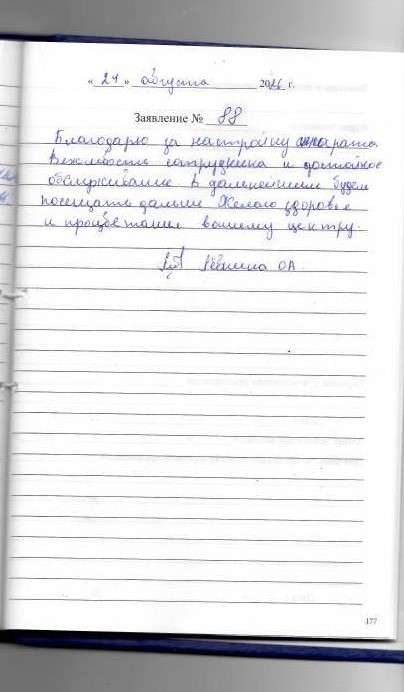 « 24 » августа 2016 г.
Заявление № 88
Благодарю за настройку аппарата
Вежливость сотрудника и достойное
обслуживание в дальнейшем будем
посещать дальше Желаю здоровье
и процветания вашему центру.
ОА
177